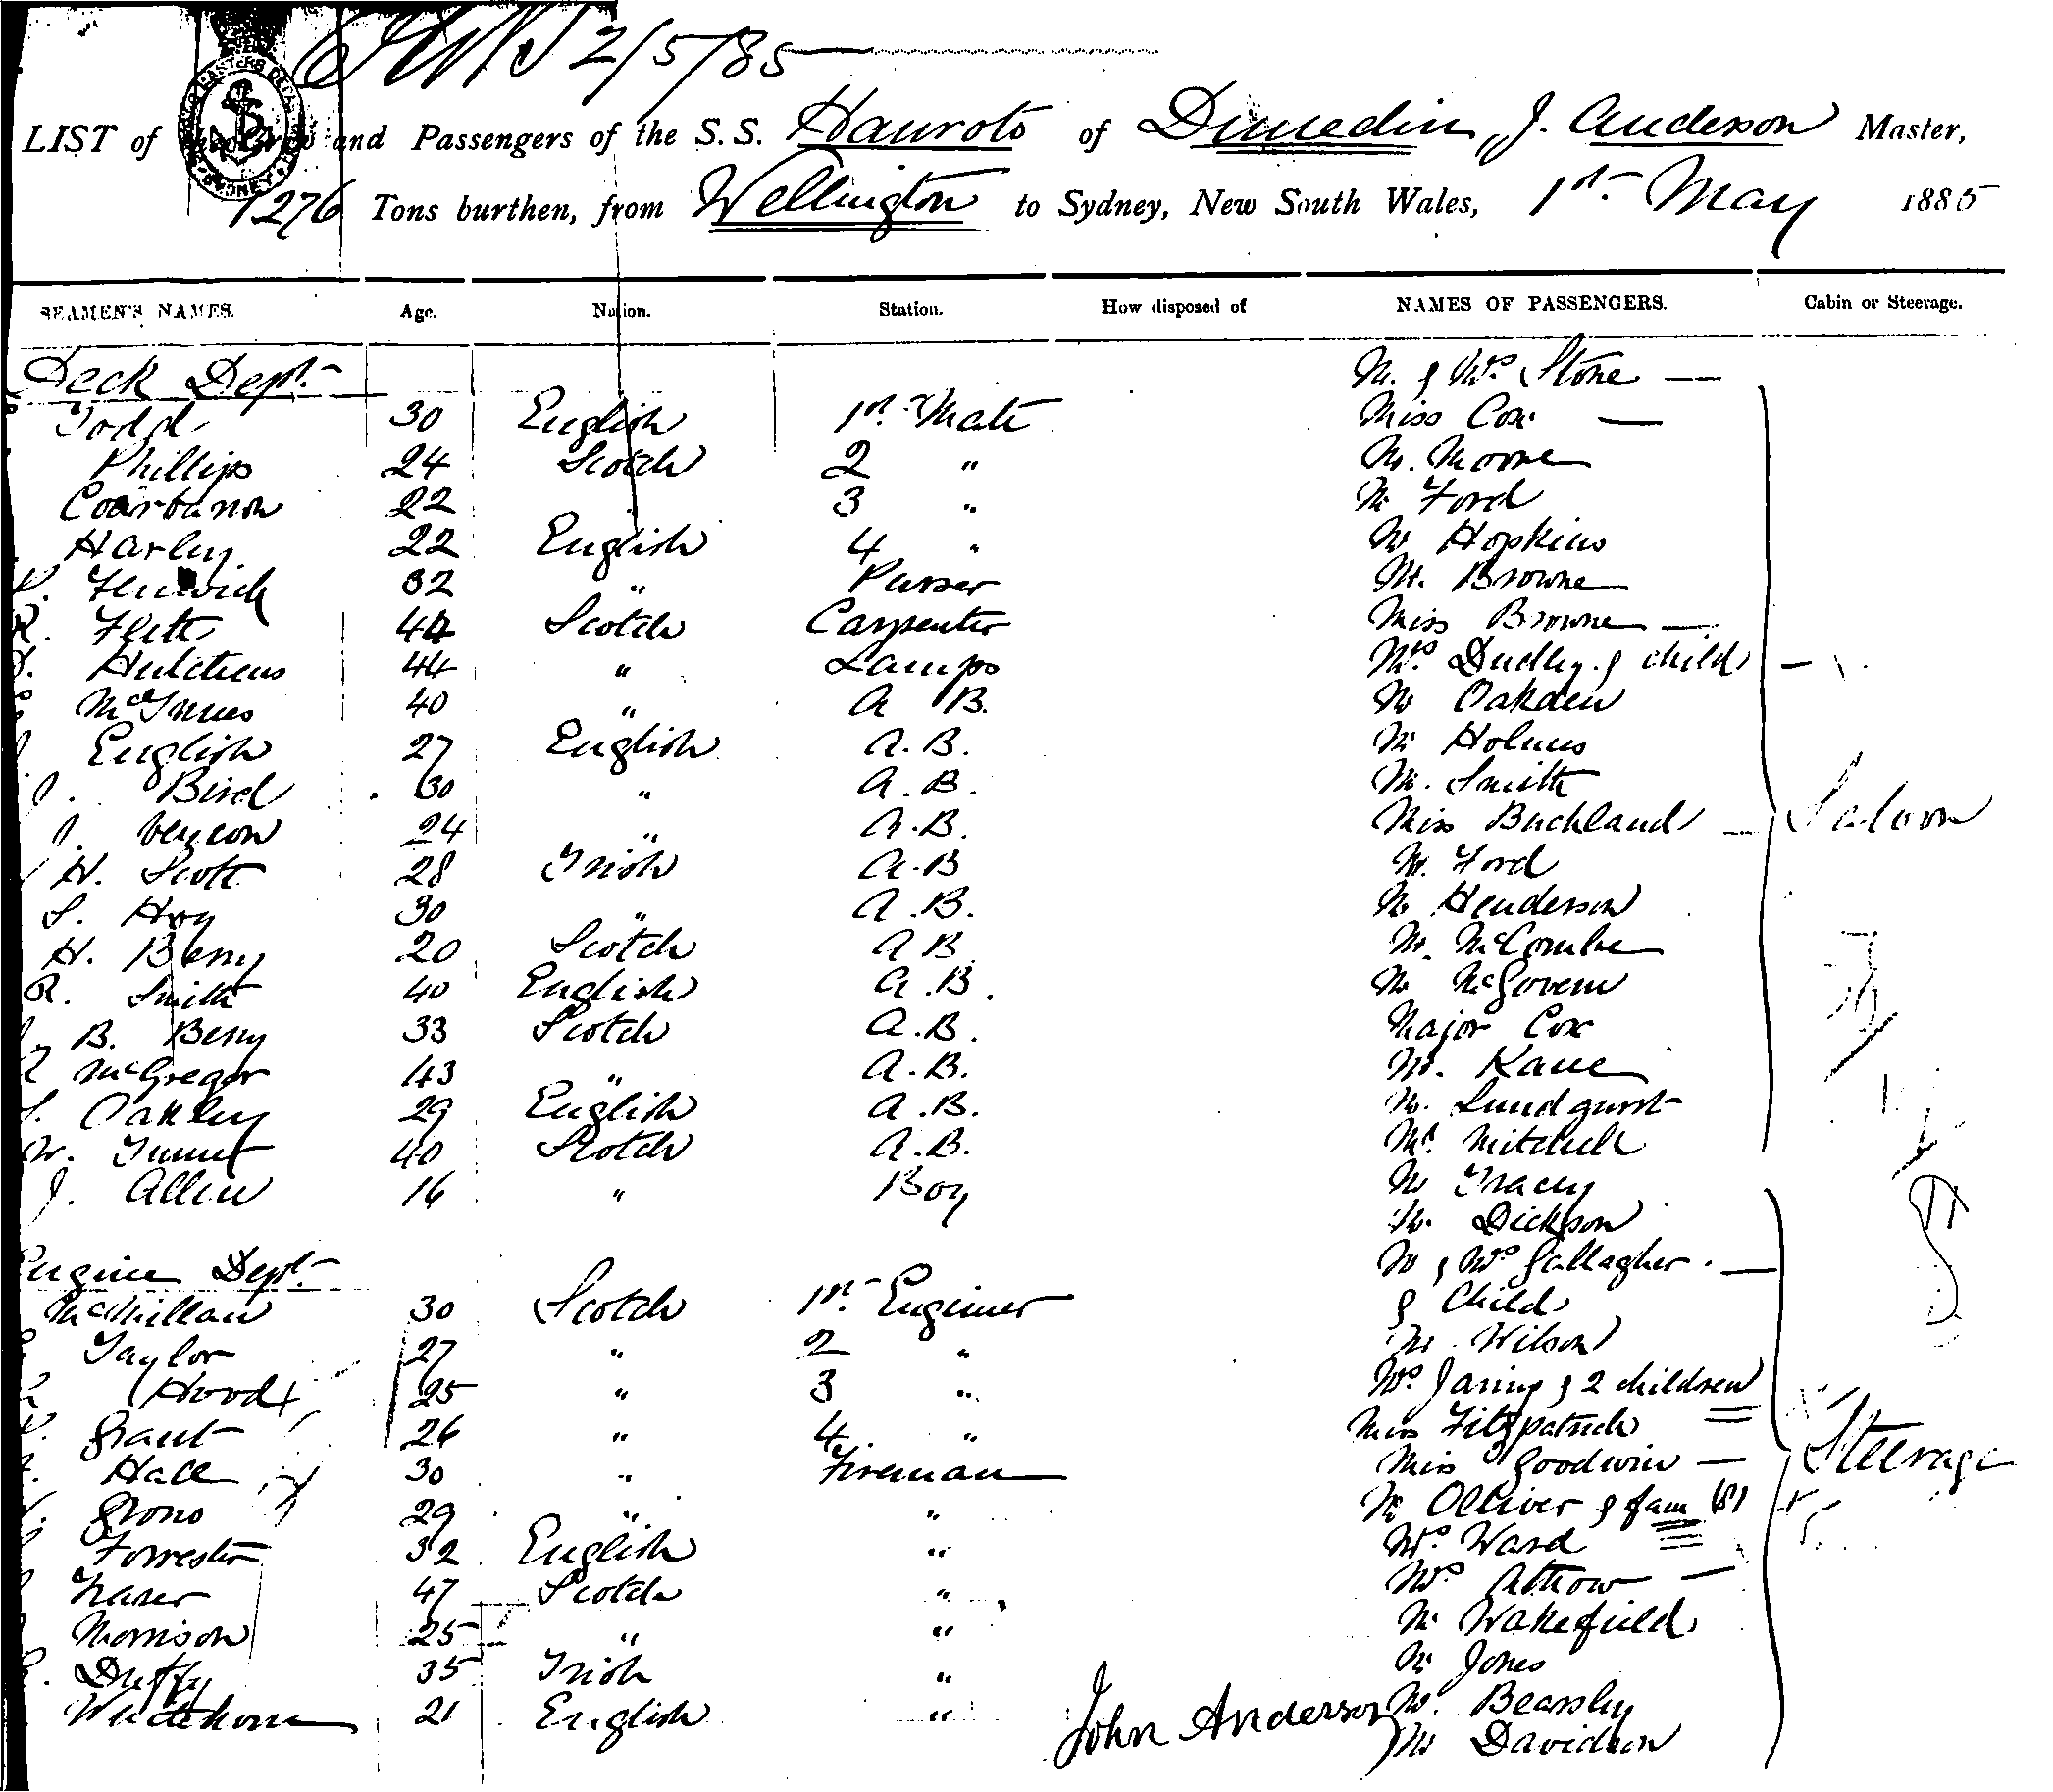 2/5/85
LIST of the Crew and Passengers of the S.S. Hauroto of Dunedin, J. Anderson Master,
1276 Tons burthen, from Wellington to Sydney, New South Wales, 1st May 1885
SEAMEN'S NAMES. Age. Nation. Station. How disposed of NAMES OF PASSENGERS. Cabin or Steerage.
Deck Dept. M. & Mrs Stone —
Todd 30 English 1st Mate Miss Cox —
Phillips 24 Scotch 2 " Mr. Moore
22 3 " Mr Ford
Harley 22 English 4 " Mr Hopkins
Fenwick 32 " Purser Mr. Browne
R. Flett 44 Scotch Carpenter Miss Browne —
Hutcheus 44 " Lamps Mrs Dudley & child —
McInnes 40 " A B. Mr Oakden
English 27 English A.B. Mr Holmes
J. Bird 30 " A.B. Mr. Smith
J. 24 " A.B. Miss Buckland — Saloon
H. Scott 28 Irish A.B Mr. Ford
S. Hoy 30 " A.B. Mr Henderson
H. Berry 20 Scotch A B. Mr. McCombe
R. Smith 40 English A.B. Mr McGovern
B. Berry 33 Scotch A.B. Major Cox
McGregor 43 " A.B. Mr. Kane
S. Oakley 29 English A.B. Mr. Lundqurst
W. 40 Scotch A.B. Mr. Mitchell
J. Allen 16 " Boy Mr Tracey
Mr. Dickson
Engine Dept. Mr & Mrs Gallagher. —
McMillan 30 Scotch 1st Engineer & Child
Taylor 27 " 2 " Mr. Wilson
Hood 25 " 3 " Mrs & 2 children
Grant 26 " 4 " Miss Fitzpatrick
Hall 30 " Fireman Miss Goodwin — Steerage
Grono 29 " " Mr Olliver & fam (8)
Forrester 32 English " Mrs Ward
Fraser 47 Scotch " Mrs —
Morrison 25 " " Mr Wakefield
Duffy 35 Irish " Mr Jones
21 English " John Anderson Mr. Bearsley
Mr Davidson